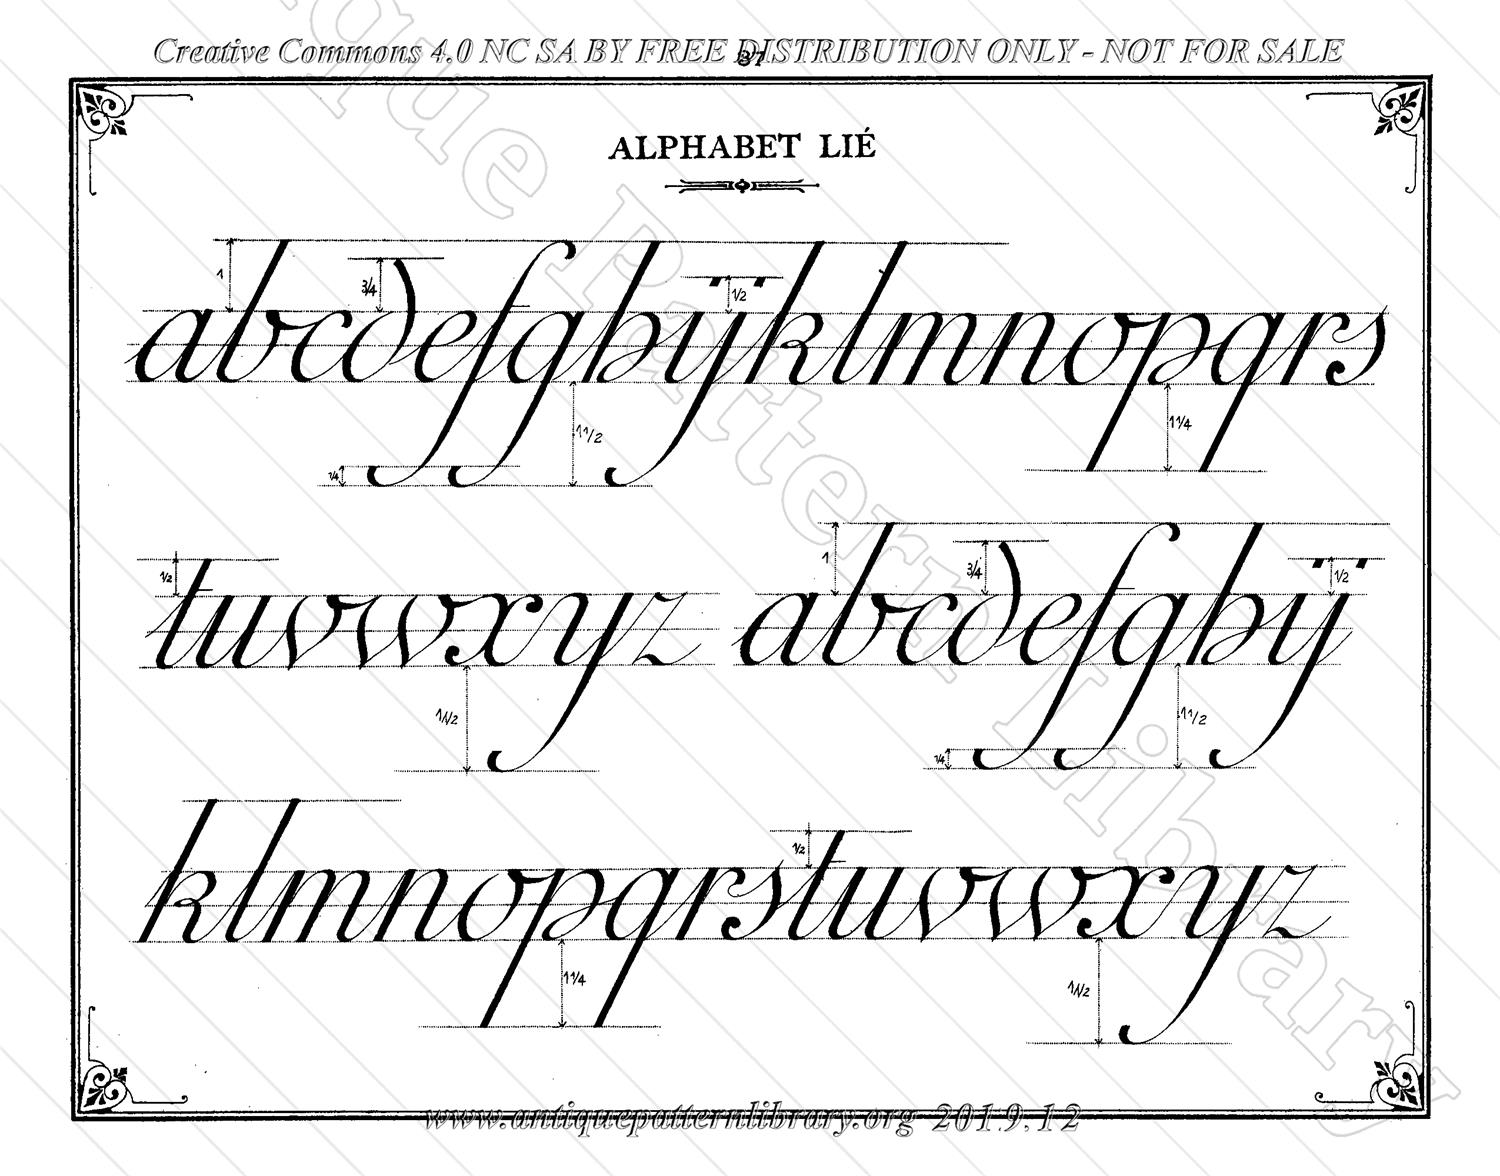 Creative Commons 4.0 NC SA BY FREE DISTRIBUTION ONLY - NOT FOR SALE
37
ALPHABET LIÉ
1 3/4 1/2
abcdefghijklmnopqrs
1 1/2 1 1/4
1/4
1/2 1 3/4 1/2
tuvwxyz abcdefghij
1 1/2 1 1/2
1/4
1/2
klmnopqrstuvwxyz
1 1/4 1 1/2
Antique Pattern Library
www.antiquepatternlibrary.org 2019.12